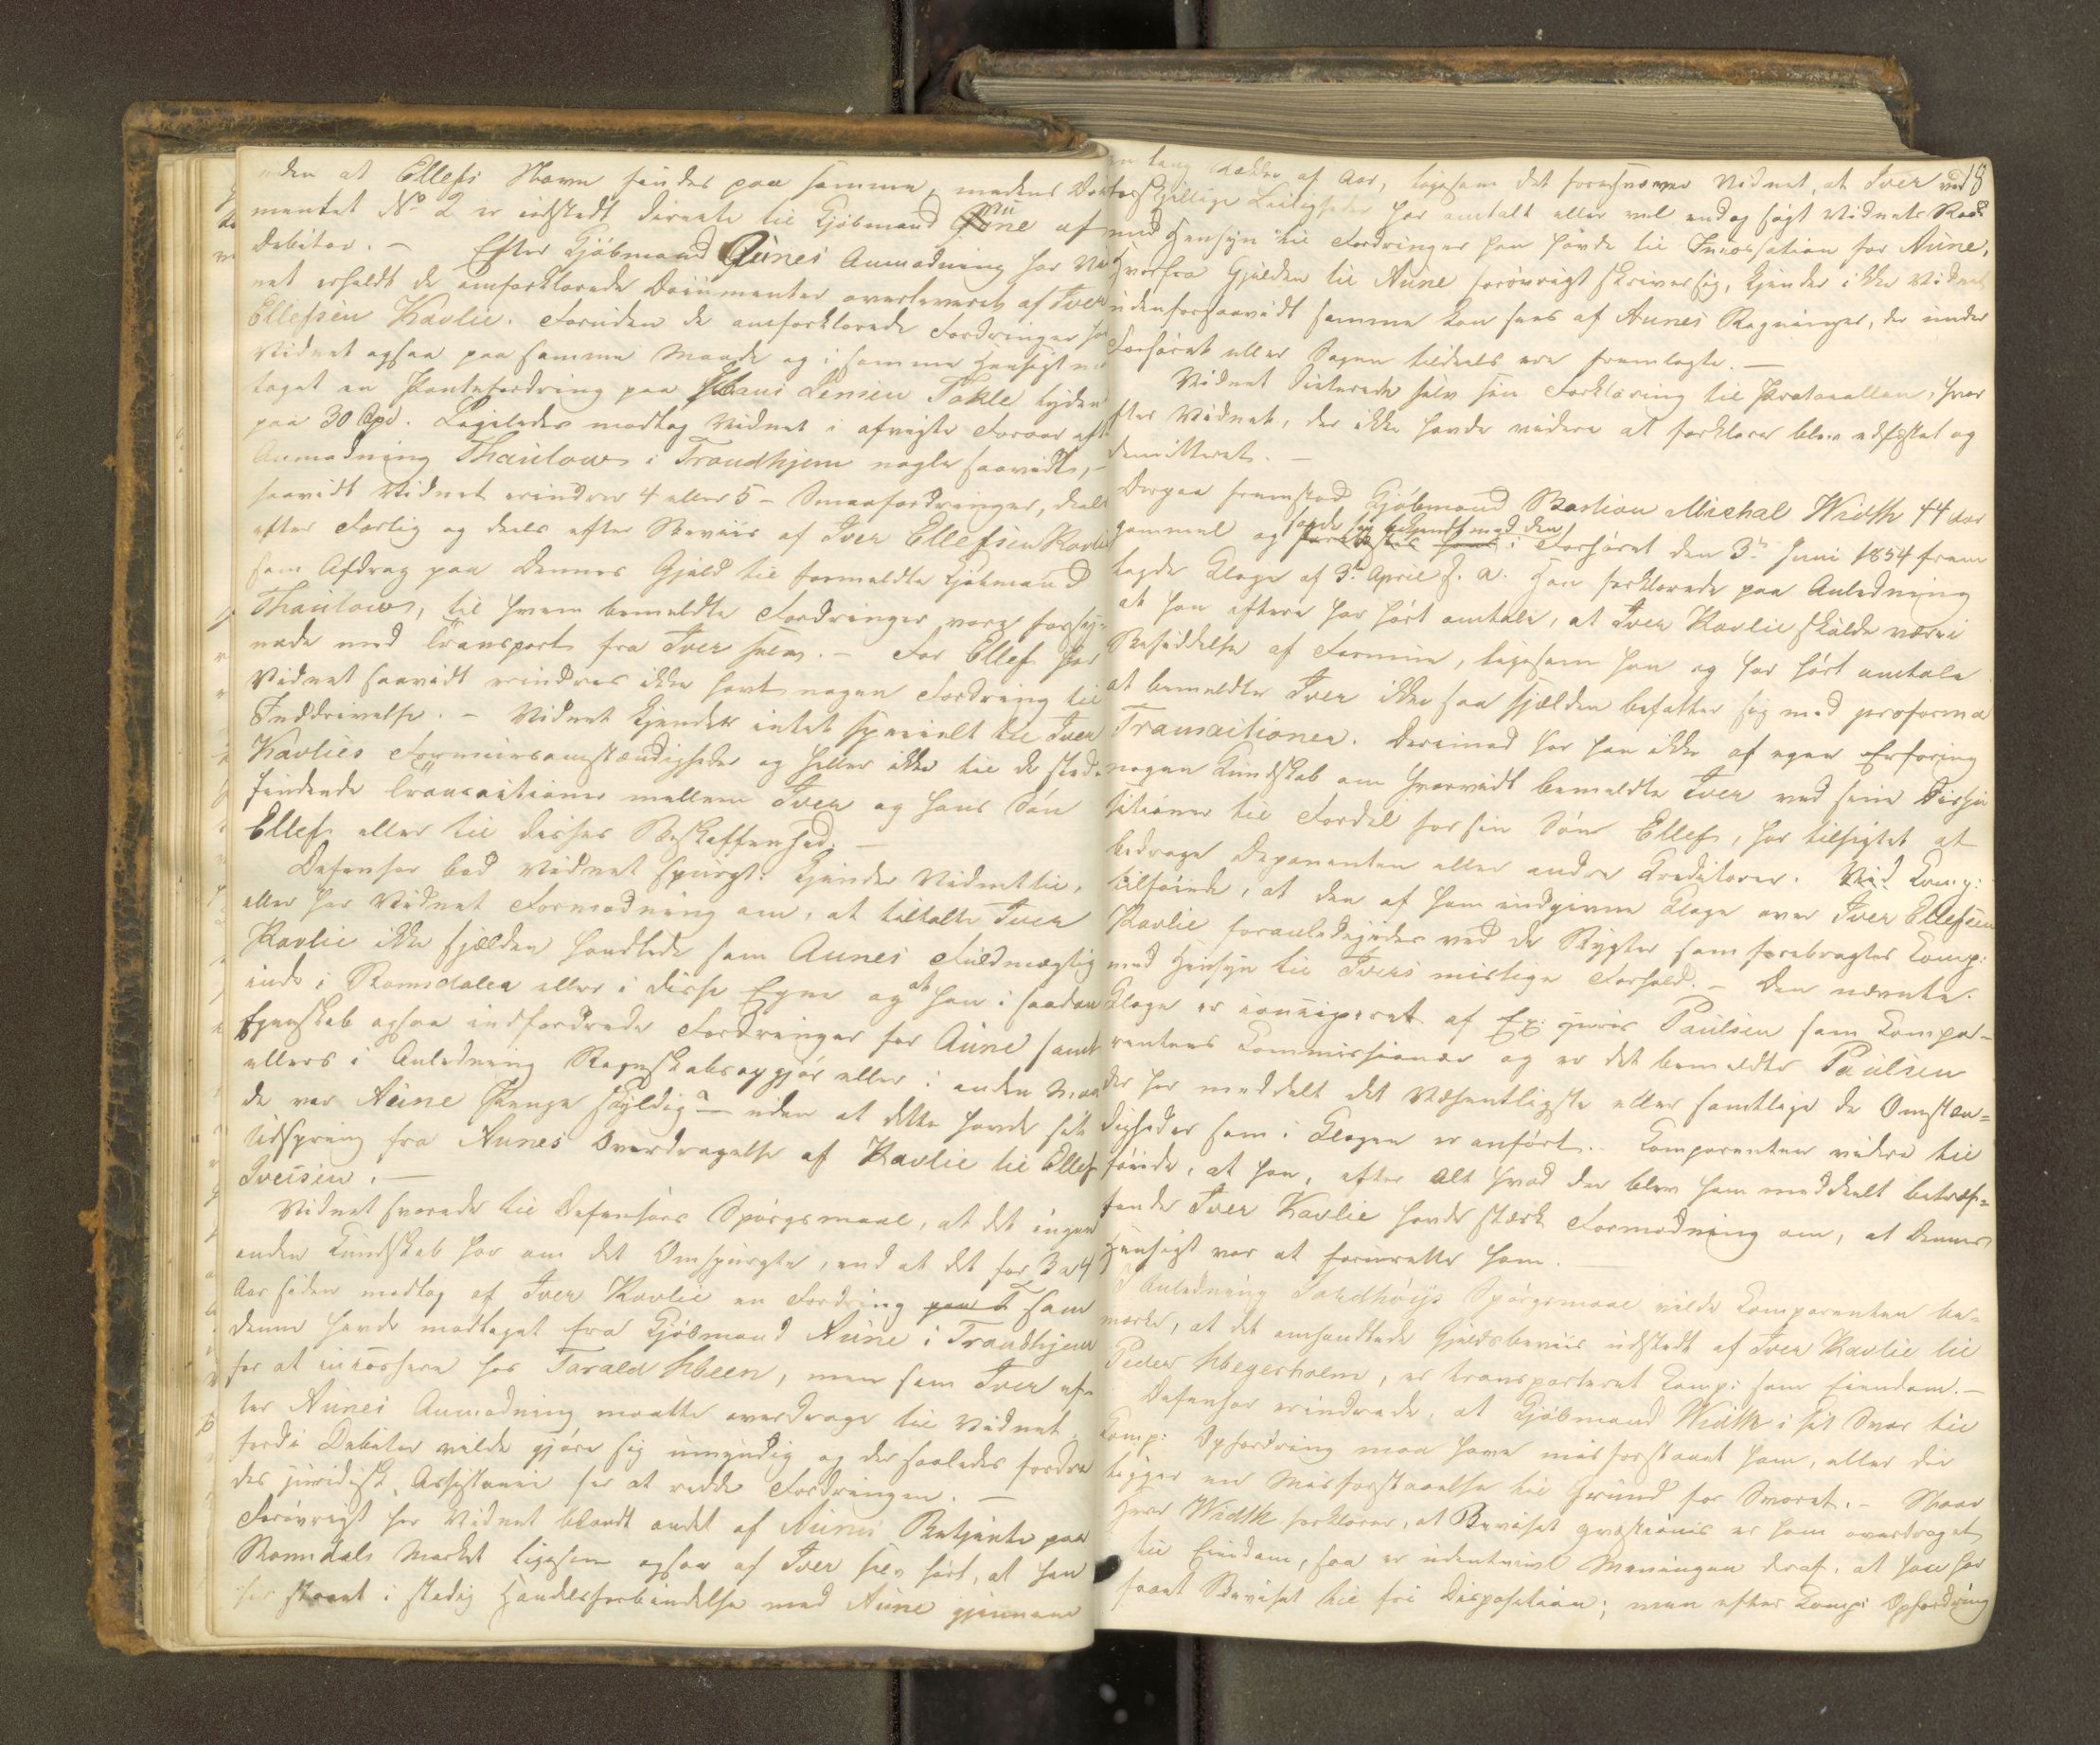 uden at Ellefs Navn findes paa samme, medens Doku
mentet No 2 er udstedt directe til Kjøbmand Aune af
Debitor. – Efter Kjøbmand Aunes Anmodning har Vid
net erholdt de omforklarede Documenter overleveret af Iver
Ellefsen Kavlie. Foruden de omforklarede Fordringer har
Vidnet ogsaa paa samme Maade og i samme Hensigt mod
taget en Pantefordring paa Hans Jensen Tokle lydende
paa 30 Spd. Ligeledes modtog Vidnet i afvigte Foraar efter
Anmodning Thaulows i Trondhjem nogle saavidt, –
saavidt Vidnet erindrer 4 eller 5 – Smaafordringer, deels
efter Forlig og deels efter Beviis af Iver Ellefsen Kavlie
som Afdrag paa dennes Gjeld til formeldte Kjøbmand
Thaulow, til hvem bemeldte Fordringer vare forsy=
nede med Transport fra Iver selv. – For Ellef har
Vidnet saavidt erindres ikke havt nogen Fordring til
Inddrivelse. – Vidnet kjender intet specielt til Iver
Kavlies Formuesomstændigheder og heller ikke til de sted=
findende Transactioner mellem Iver og hans Søn
Ellef eller til disses Beskaffenhed. –
Defensor bad Vidnet spurgt: Kjender Vidnet til,
eller har Vidnet Formodning om, at tiltalte Iver
Kavlie ikke sjelden handlede som Aunes Fuldmægtig
inde i Romsdalen eller i disse Egne og at han i saadan
Egenskab ogsaa indfordrede Fordringer for Aune samt
ellers i Anledning Regnskabsopgjør eller i anden Maa
de var Aune Penge skyldig? – uden at dette havde sit
Udspring fra Aunes Overdragelse af Kavlie til Ellef
Iversen. –
Vidnet svarede til Defensors Spørgsmaal, at det ingen
anden Kundskab har om det Omspurgte, end at det for 3 a 4
Aar siden modtog af Iver Kavlie en Fordring paa T som
denne havde modtaget fra Kjøbmand Aune i Trondhjem
for at incassere hos Tarald Steen, men som Iver ef=
ter Aunes Anmodning maatte overdrage til Vidnet,
fordi Debitor vilde gjøre sig umyndig og der saaledes fordre
des juridisk Assistance for at redde Fordringen. –
Forøvrigt har Vidnet blandt andet af Aunes Betjente paa
Romsdals Marked ligesom ogsaa af Iver selv hørt, at han
har staaet i stadig Handelsforbindelse med Aune gjennem
18
en lang Række af Aar, ligesom det forekommer Vidnet, at Iver ved
forskjellige Leiligheder har omtalt eller vel endog søgt Vidnets Raad
med Hensyn til Fordringer han havde til Incassation for Aune,
Hvorfra Gjelden til Aune forøvrigt skriver sig, kjender ikke Vidnet
udenforsaavidt samme kan sees af Aunes Regninger, der under
Forhøret eller Sagen tildeels ere fremlagte. –
Vidnet dicterede selv sin Forklaring til Protocollen, hvor
efter Vidnet, der ikke havde videre at forklare blev edfæstet og
demitteret. –
Derpaa fremstod Kjøbmand Bastian Michal Width 44 Aar
gammel og havde sig bekjendt med den i Forhøret den 3de Juni 1854 frem
lagde Klage af 3de April s. A. Han forklarede paa Anledning
at han oftere har hørt omtale, at Iver Kavlie skulde være i
Besiddelse af Formue, ligesom han og har hørt omtale
at bemeldte Iver ikke saa sjelden befatter sig med proforma
Transactioner. Derimod har han ikke af egen Erfaring
nogen Kundskab om hvorvidt bemeldte Iver ved sine Dispo
sitioner til Fordel for sin Søn Ellef, har tilsigtet at
bedrage Deponenten eller andre Kreditorer. Vid. Comp:
tilføiede, at den af ham indgivne Klage over Iver Ellefsen
Kavlie foranledigedes ved de Rygter som forebragtes Comp:
med Hensyn til Ivers mislige Forhold. – Den nævnte
Klage er concipieret af Ex: juris Paulsen som Compa=
rentens Commissionær og er det bemeldte Paulsen
der har meddelt det Væsentligste eller samtlige de Omstæn=
digheder som i Klagen er anført. Comparenten videre til
føiede, at han, efter alt hvad der blev ham meddeelt betræf=
fende Iver Kavlie havde stærk Formodning om, at dennes
Hensigt var at forurette ham. –
I Anledning Sordhøys Spørgsmaal vilde Comparenten be=
mærke, at det omhandlede Gjeldsbeviis udstedt af Iver Kavlie til
Peder Megerholm, er transporteret Comp: som Eiendom. –
Defensor erindrede, at Kjøbmand Width i sit Svar til
Comp: Opfordring maa have misforstaaet ham, eller der
ligger en Misforstaaelse til Grund for Svaret. – Naar
Herr Width forklarer, at Beviset qvæstionis er ham overdraget
til Eiendom, saa er udentvivl Meningen deraf, at han har
faaet Beviset til fri Disposition; men efter Comp: Opfordring